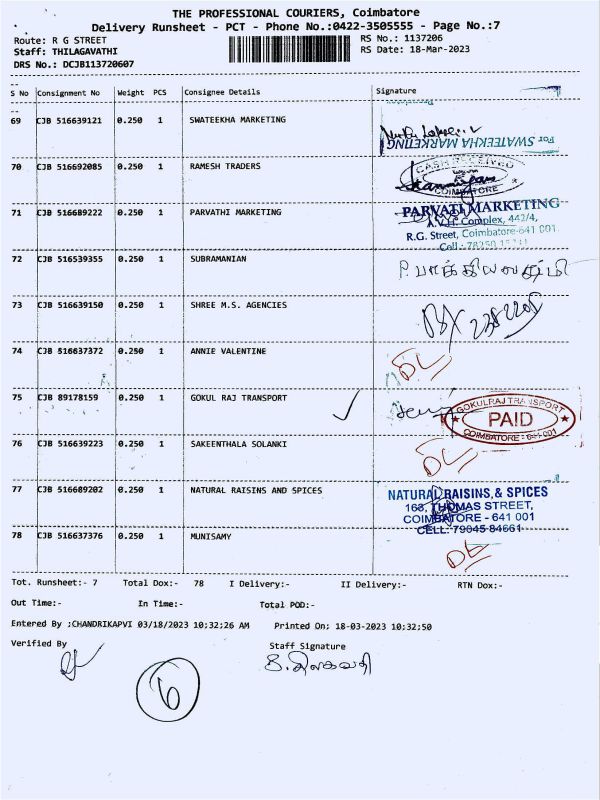 THE PROFESSIONAL COURIERS, Coimbatore
Delivery Runsheet - PCT - Phone No.:0422-3505555 - Page No.:7
Route: R G STREET RS No.: 1137206
Staff: THILAGAVATHI RS Date: 18-Mar-2023
DRS No.: DCJB113720607
S No Consignment No Weight PCS Consignee Details Signature
69 CJB 516639121 0.250 1 SWATEEKHA MARKETING
For SWATEEKHA MARKETING
70 CJB 516692085 0.250 1 RAMESH TRADERS CASH RECEIVED
COIMBATORE
71 CJB 516689222 0.250 1 PARVATHI MARKETING PARVATI MARKETING
A.V.H. Complex, 442/4,
R.G. Street, Coimbatore-641 001.
Cell:
72 CJB 516539355 0.250 1 SUBRAMANIAN
73 CJB 516639150 0.250 1 SHREE M.S. AGENCIES
74 CJB 516637372 0.250 1 ANNIE VALENTINE DL
75 CJB 89178159 0.250 1 GOKUL RAJ TRANSPORT GOKULRAJ TRANSPORT
PAID
COIMBATORE - 641 001
76 CJB 516639223 0.250 1 SAKEENTHALA SOLANKI DL
77 CJB 516689202 0.250 1 NATURAL RAISINS AND SPICES NATURAL RAISINS & SPICES
168, THOMAS STREET,
COIMBATORE - 641 001
CELL: 79045 84661
78 CJB 516637376 0.250 1 MUNISAMY DL
Tot. Runsheet:- 7 Total Dox:- 78 I Delivery:- II Delivery:- RTN Dox:-
Out Time:- In Time:- Total POD:-
Entered By ;CHANDRIKAPVI 03/18/2023 10:32:26 AM Printed On; 18-03-2023 10:32:50
Verified By Staff Signature
6